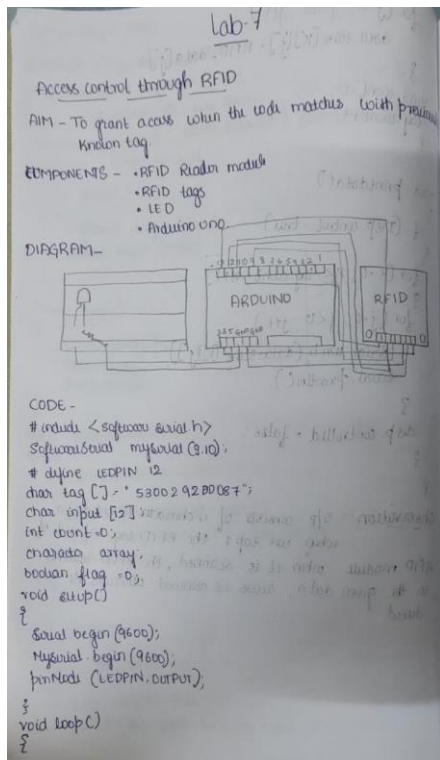 Lab-7
Access control through RFID
AIM - To grant access when the code matches with previous
Known tag.
COMPONENTS - • RFID Reader module
• RFID tags
• LED
• Arduino uno
DIAGRAM-
ARDUINO
RFID
CODE -
# include <software serial.h>
SoftwareSerial myserial (9.10);
# define LEDPIN 12
char tag [] = "
char input [12];
int count = 0;
array;
boolean flag = 0;
void setup()
{
Serial begin (9600);
Myserial. begin (9600);
pinMode (LEDPIN, OUTPUT);
}
void loop()
{